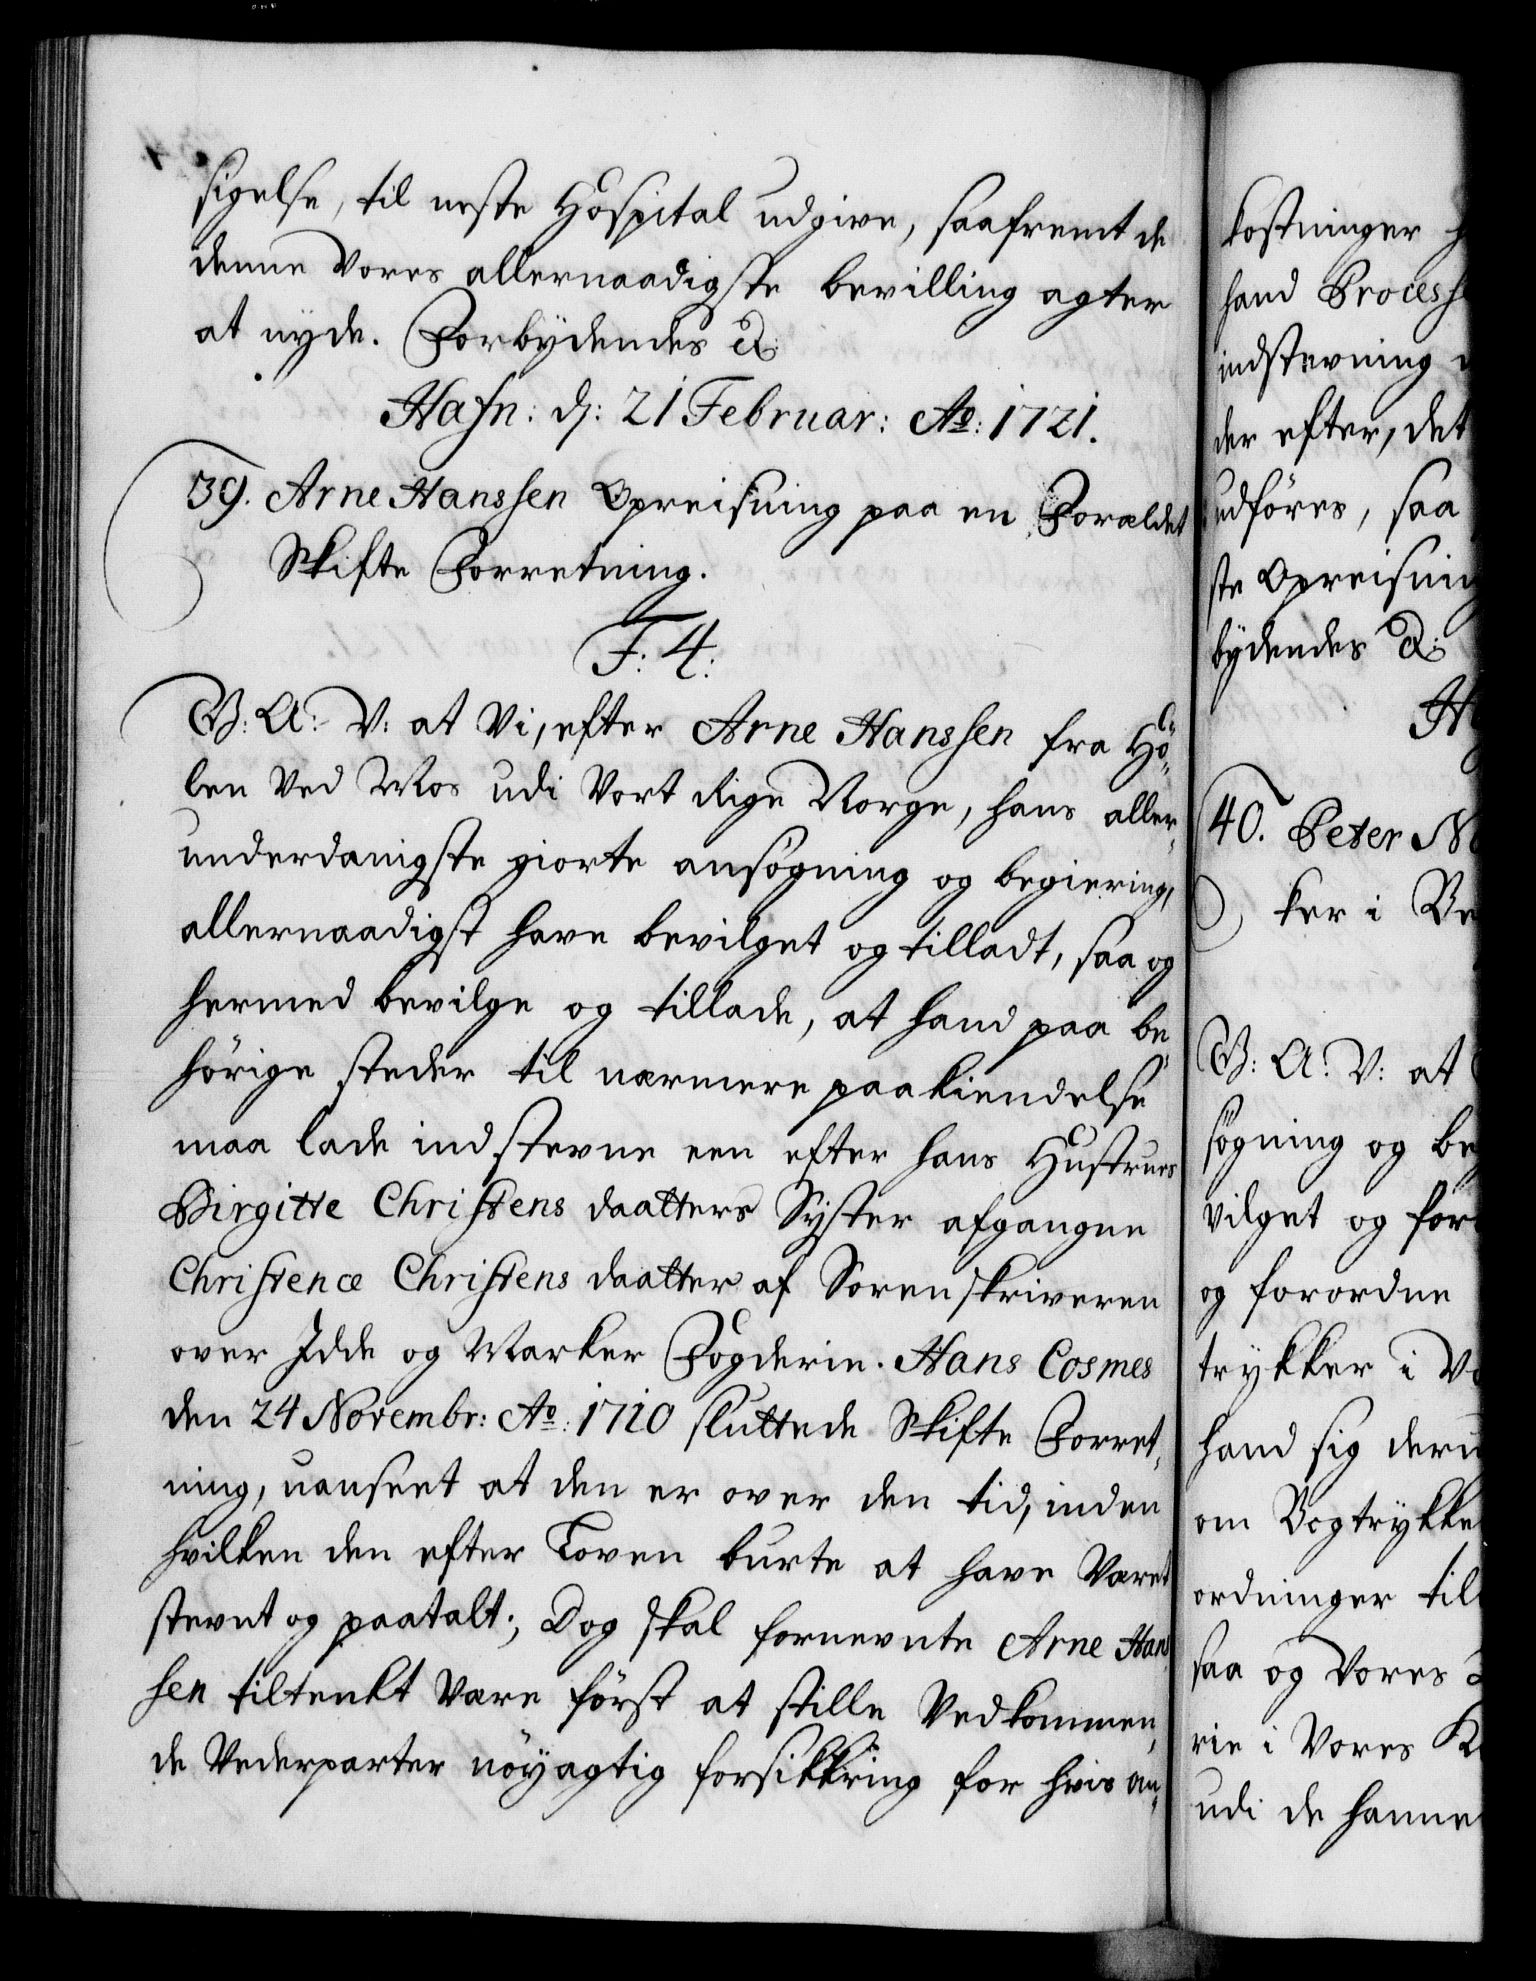 sigelse, til neste Hospital udgive, saafremt de
denne Vores allernaadigste bevilling agter
at nyde. Forbydendes &:
Hafn: d: 21 Februar: Ao: 1721.
39. Arne Hanssen Opreisning paa en Forældet
Skifte Forretning.
F: 4:
G: A: V: at Vi, efter Arne Hanssen fra Hö-
len Ved Mos udi Vort Rige Norge, hans aller-
underdanigste giorte ansögning og begiering,
allernaadigst have bevilget og tilladt, saa og
hermed bevilge og tillade, at hand paa be-
hörige steder til nærmere paakiendelse
maa lade indstevne een efter hans Hustrues
Birgitte Christens daatters Syster afgangne
Christence Christens daatter af Sorenskriveren
over Idde og Marker Fogderie. Hans Cosmes
den 24 Novembr: Ao: 1710 sluttede Skifte Forret-
ning, uanseet at den er over den tid, inden
hvilken den efter Loven burte at have Været
stevnt og paatalt; Dog skal fornevnte Arne Hans-
sen tiltenkt Være först at stille Vedkommen-
de Vederparter nöyagtig forsikkring for hvis om-
kostninger
hand Process
indstevning
der efter, det
udföres, saa
ste Opreisning
bydendes &:
40. Peter
ker i
G: A: V: at
sögning og be
vilget og for
og forordne
trykker i
hand sig deru
om Bogtrykke
ordninger til
saa og Vores
rie i Vores
udi de hanne